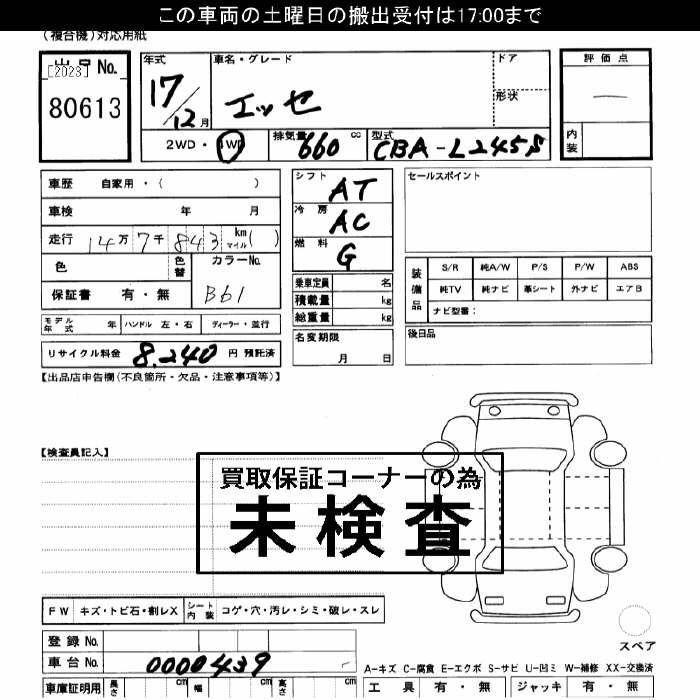 この車両の土曜日の搬出受付は17:00まで
(複合機)対応用紙
出品No.
[2023]
80613
年式
17/12月
車名・グレード
エッセ
ドア
形状
評価点
—
内装
2WD・4WD
排気量 660 cc
型式 CBA-L245S
車歴 自家用・( )
車検 年 月
走行 14万7千843 km マイル( )
色
色替
カラーNo.
B61
保証書 有・無
シフト AT
冷房 AC
燃料 G
乗車定員 名
積載量 kg
総重量 kg
セールスポイント
装備品
S/R 純A/W P/S P/W ABS
純TV 純ナビ 革シート 外ナビ エアB
ナビ型番:
モデル年式 年 ハンドル 左・右 ディーラー・並行
リサイクル料金 8,240 円 預託済
名変期限
月 日
後日品
【出品店申告欄(不良箇所・欠品・注意事項等)】
【検査員記入】
買取保証コーナーの為
未検査
FW キズ・トビ石・割レX シート内装 コゲ・穴・汚レ・シミ・破レ・スレ
登録No.
車台No. 0000439
スペア
A-キズ C-腐食 E-エクボ S-サビ U-凹ミ W-補修 XX-交換済
車庫証明用 長さ cm 幅 cm 高さ cm
工具 有・無 ジャッキ 有・無